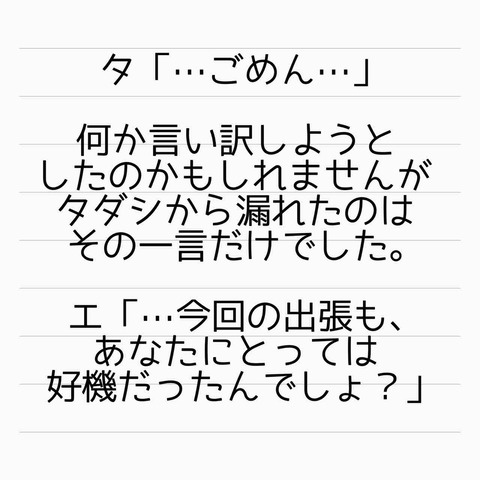 タ「…ごめん…」
何か言い訳しようと
したのかもしれませんが
タダシから漏れたのは
その一言だけでした。
エ「…今回の出張も、
あなたにとっては
好機だったんでしょ？」